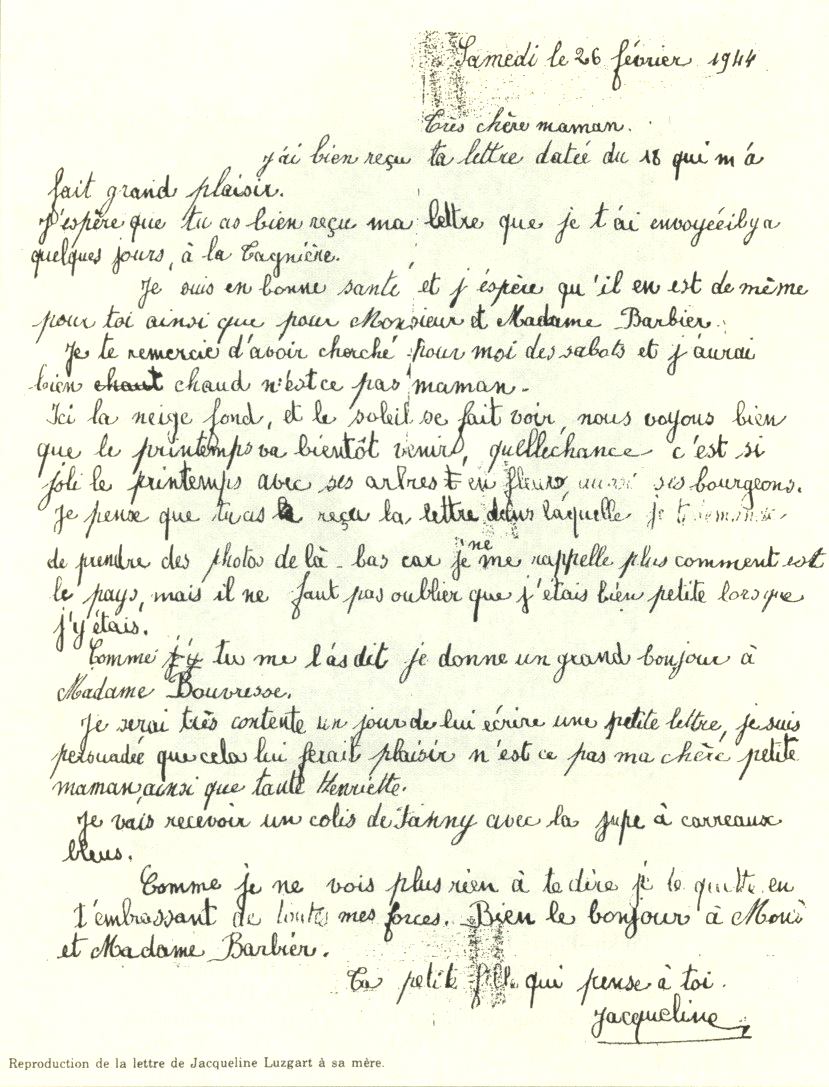 Samedi le 26 février 1944
Très chère maman.
j'ai bien reçu ta lettre datée du 18 qui m'a
fait grand plaisir.
J'espère que tu as bien reçu ma lettre que je t'ai envoyée il y a
quelques jours, à la Tagnière.
Je suis en bonne santé et j'éspère qu'il en est de même
pour toi ainsi que pour Monsieur et Madame Barbier.
Je te remercie d'avoir cherché pour moi des sabots et j'aurai
bien chaut chaud n'est ce pas maman.
Ici la neige fond, et le soleil se fait voir, nous voyons bien
que le printemps va bientôt venir, quelle chance c'est si
joli le printemps avec ses arbres en fleurs, aussi ses bourgeons.
Je pense que tu as reçu la lettre dans laquelle je te demande
de prendre des photos de là-bas car je ne me rappelle plus comment est
le pays, mais il ne faut pas oublier que j'étais bien petite lorsque
j'y étais.
Comme j'y tu me l'as dit je donne un grand bonjour à
Madame Bouvresse.
Je serai très contente un jour de lui écrire une petite lettre, je suis
persuadée que cela lui ferait plaisir n'est ce pas ma chère petite
maman, ainsi que tante Henriette.
Je vais recevoir un colis de Fanny avec la jupe à carreaux
bleus.
Comme je ne vois plus rien à te dire je te quitte en
t'embrassant de toutes mes forces. Bien le bonjour à
et Madame Barbier.
Ta petite fille qui pense à toi.
Jacqueline
Reproduction de la lettre de Jacqueline Luzgart à sa mère.